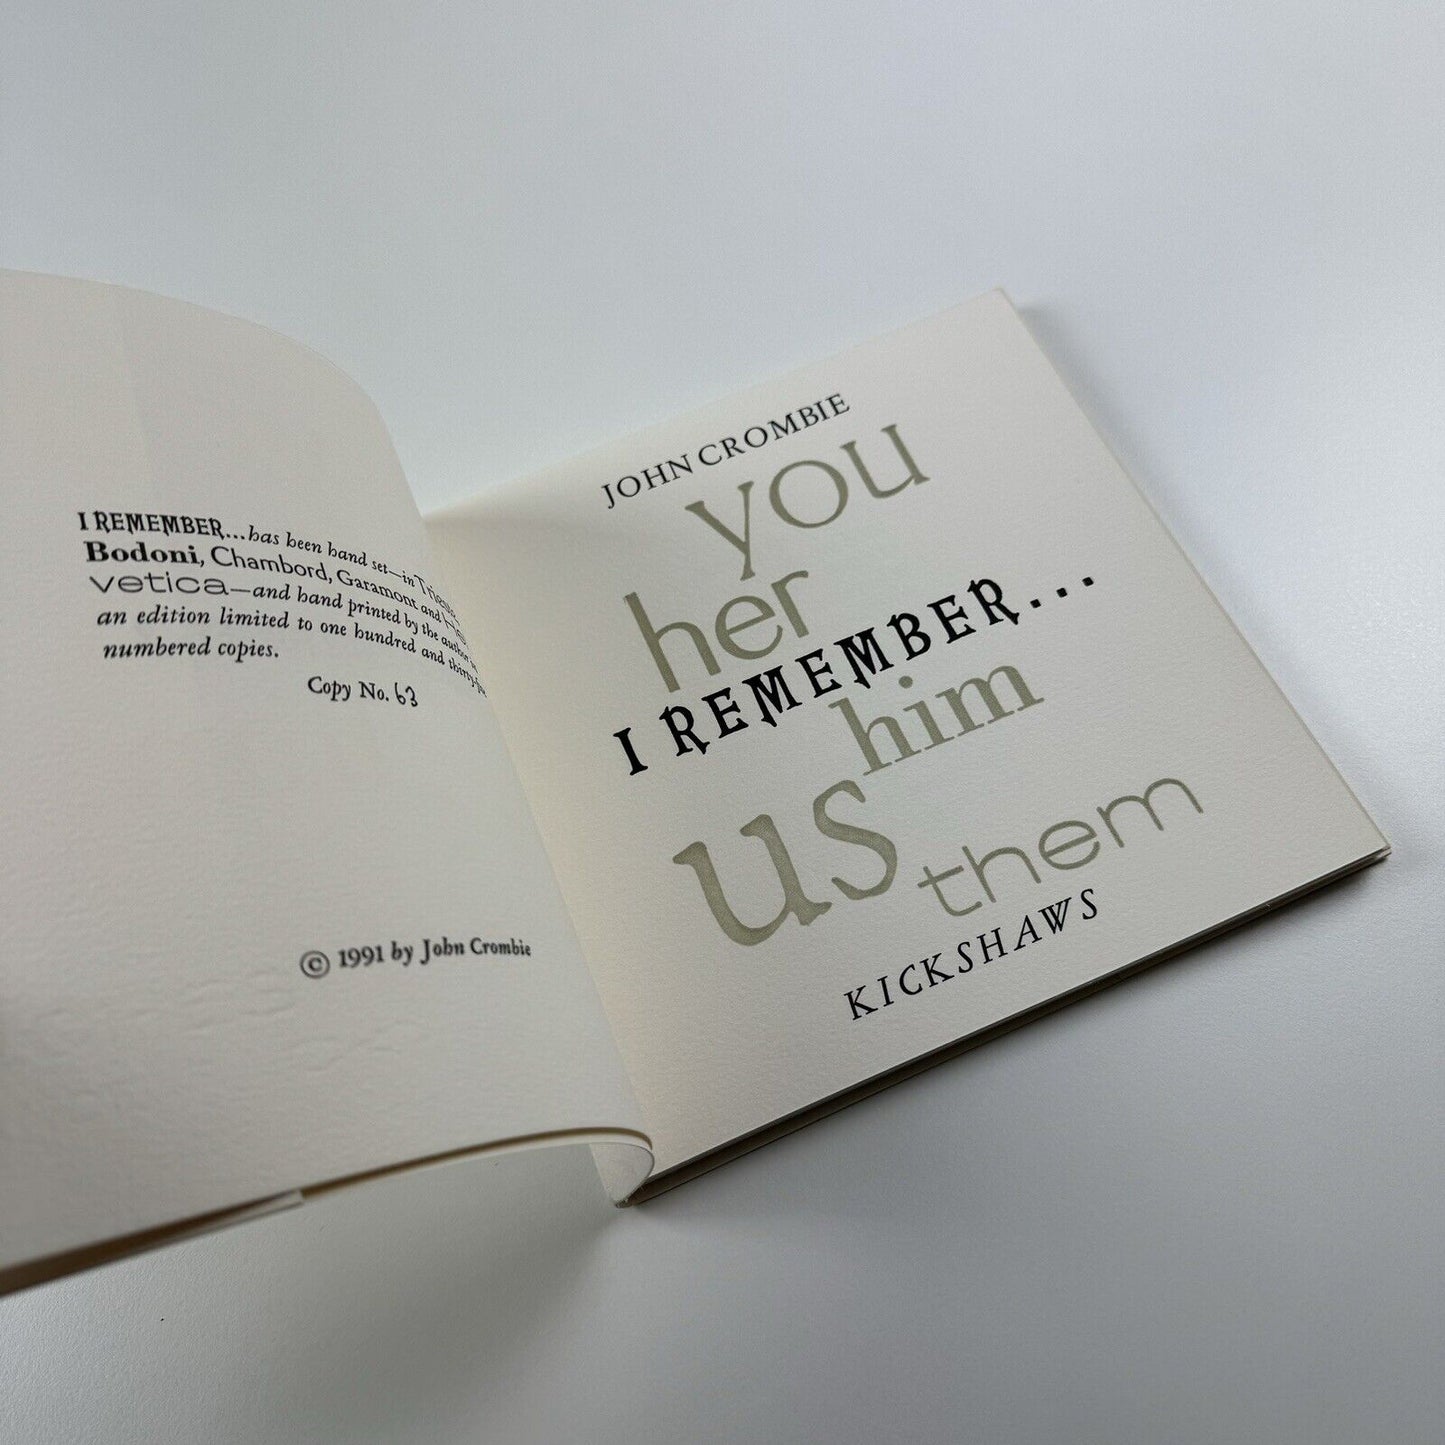 I REMEMBER...has been hand set—in
Bodoni, Chambord, Garamont and
vetica—and hand printed by the author in
an edition limited to one hundred and
numbered copies.
Copy No. 63
© 1991 by John Crombie
JOHN CROMBIE
you
her
I REMEMBER...
him
us
them
KICKSHAWS